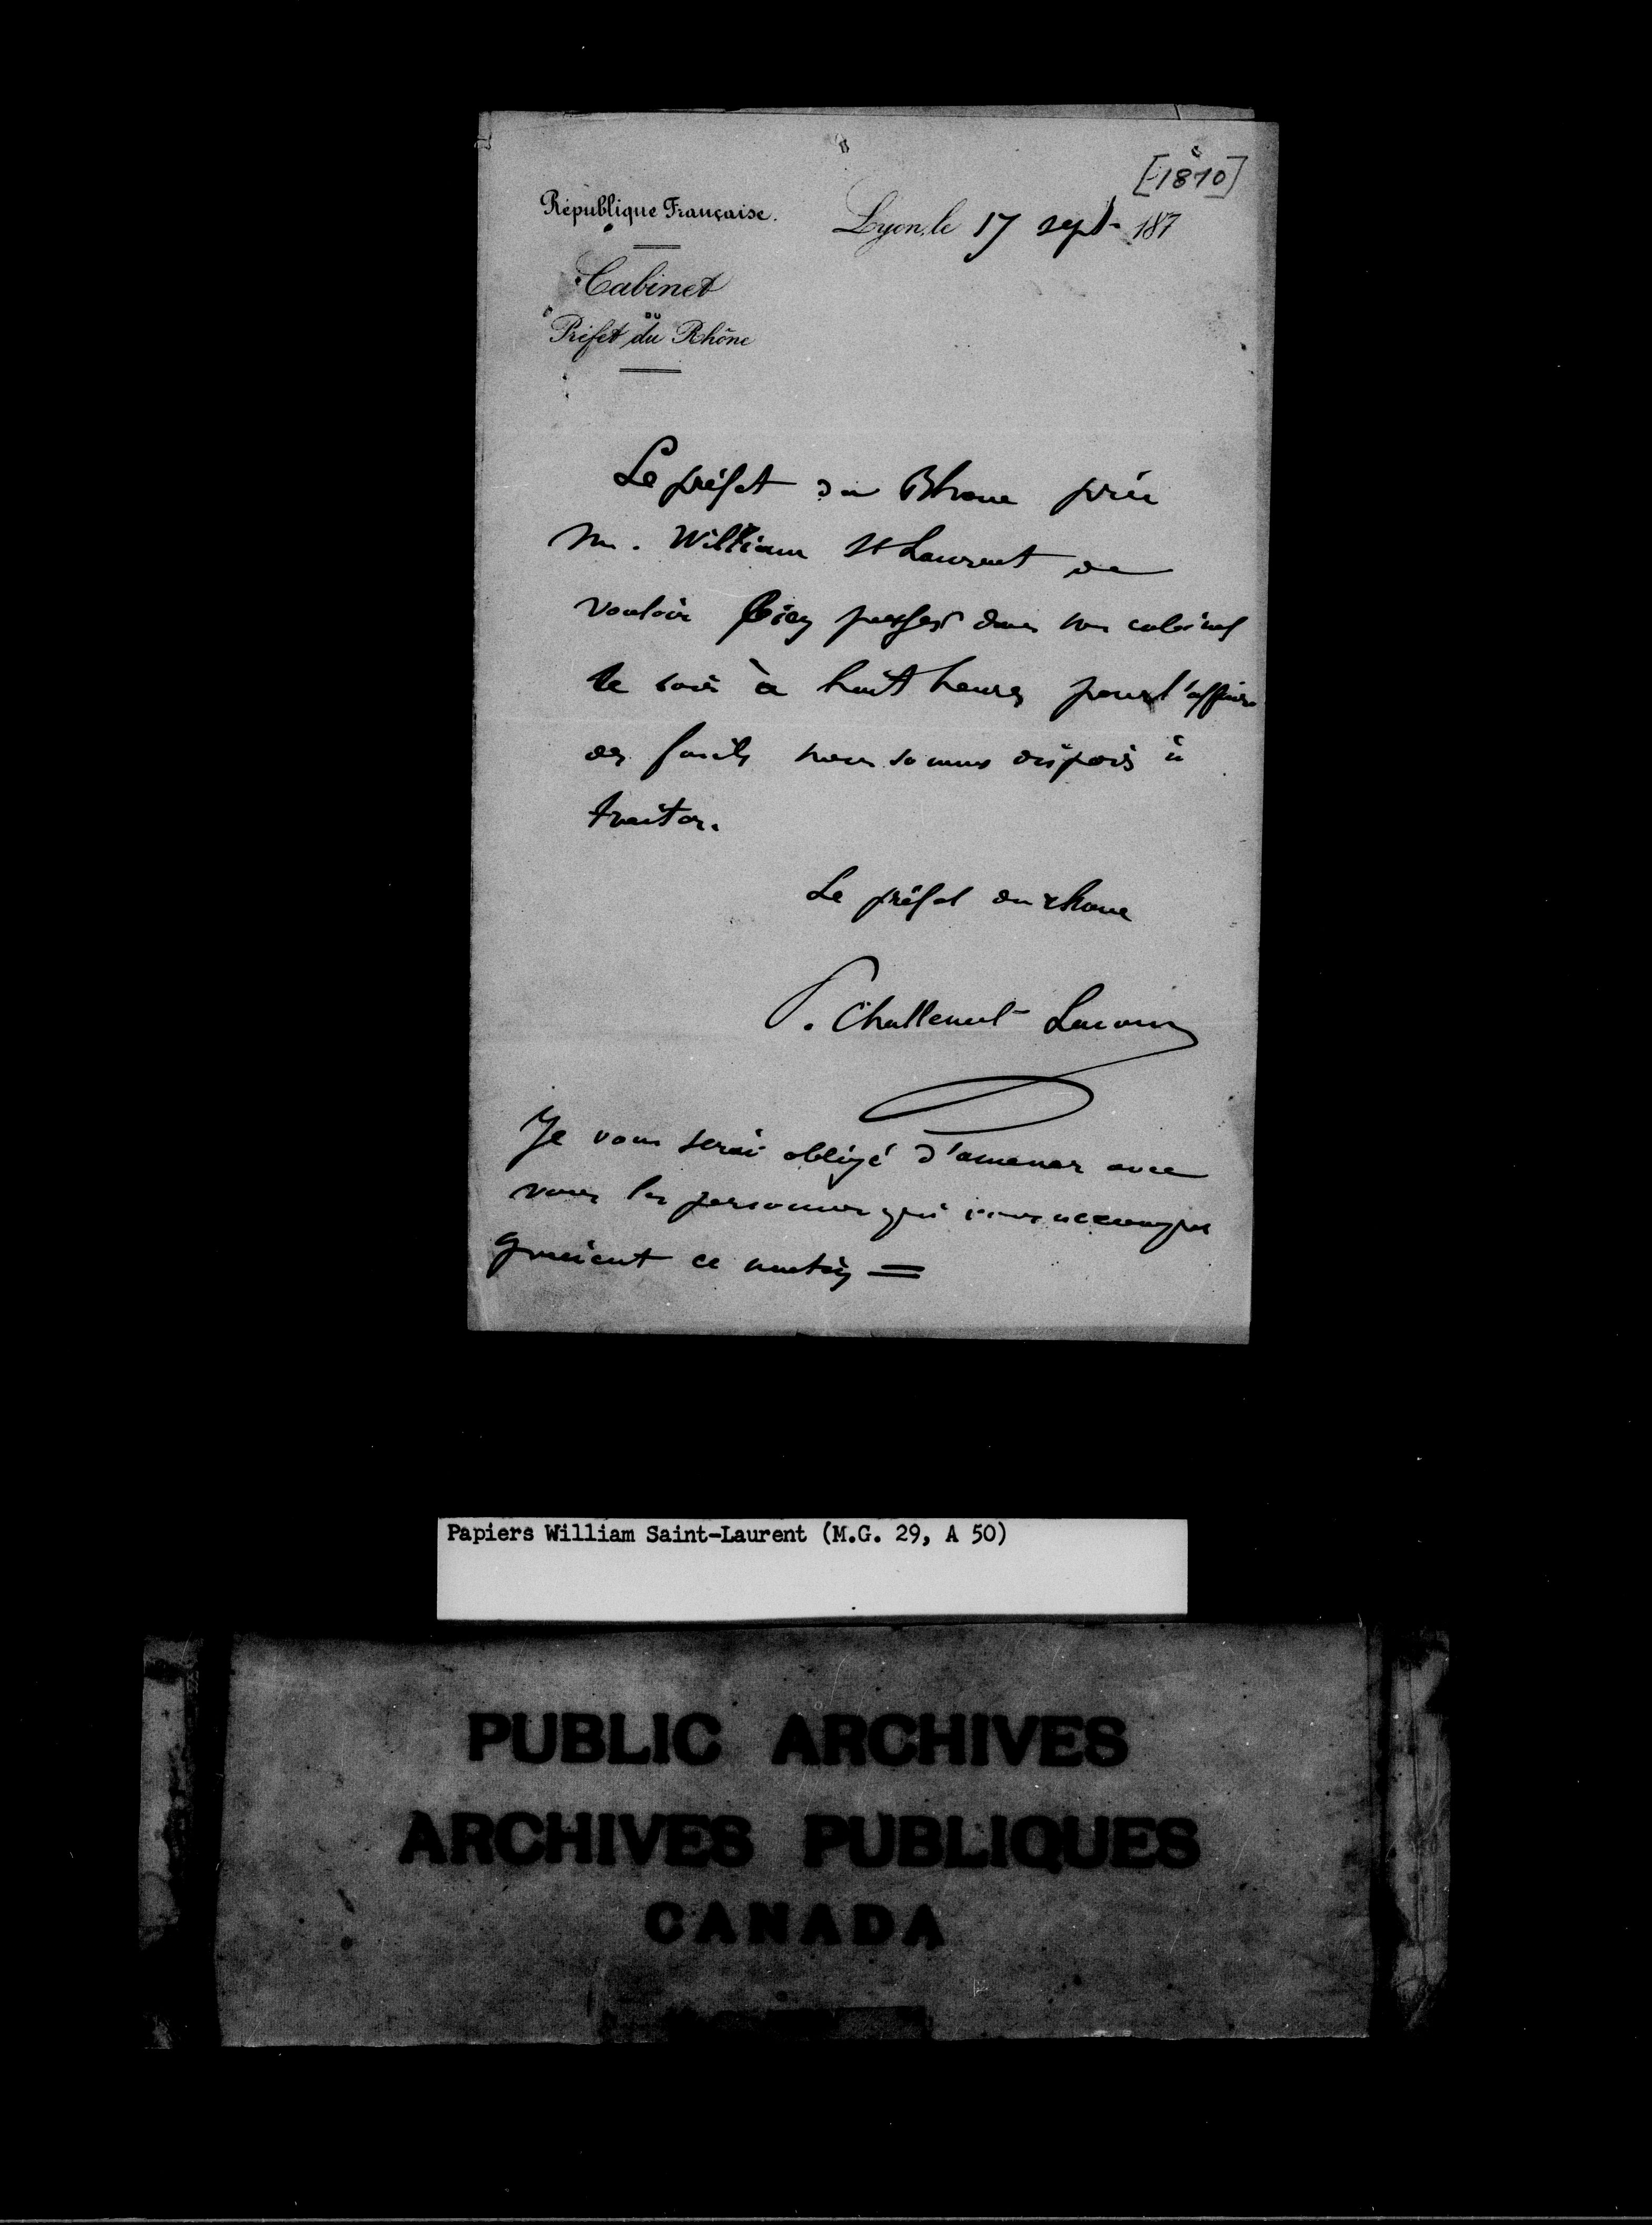 [1870]
République Française.
Lyon, le 17 sept. 187
Cabinet
DU
Préfet du Rhône
Le préfet du Rhone prie
M. William St Laurent de
vouloir bien passer dans son cabinet
ce soir à huit heures pour l'affaire
des fusils nous sommes disposés à
traiter.
Le préfet du rhone
P. Challemel Lacour
Je vous serai obligé d'amener avec
vous les personnes qui vous accompa
gnaient ce matin =
Papiers William Saint-Laurent (M.G. 29, A 50)
PUBLIC ARCHIVES
ARCHIVES PUBLIQUES
CANADA